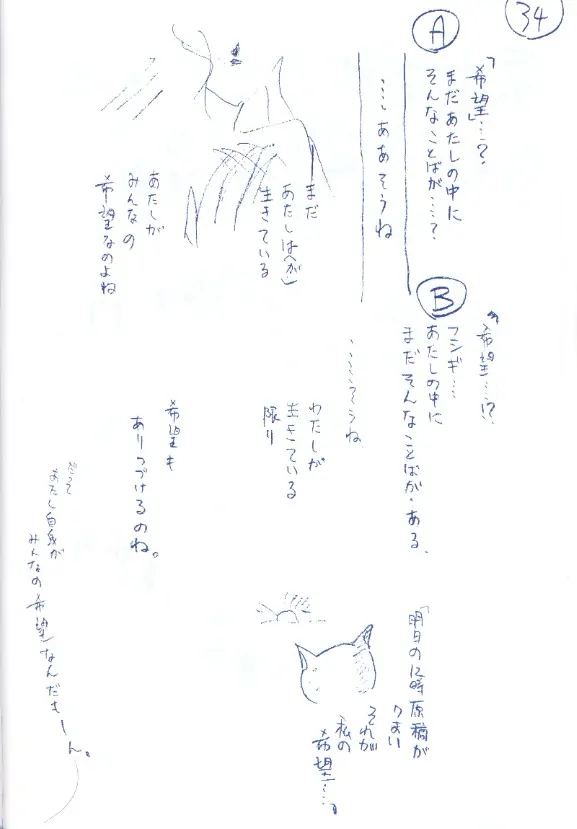 34
A
「希望」…?
まだあたしの中に
そんなことばが……?
……ああそうね
まだ
あたしは(が)
生きている
あたしが
みんなの
希望なのよね
B
"希望…!?
フシギ…
あたしの中に
まだそんなことばが・ある、
……そうね
わたしが
生きている
限り
希望も
ありつづけるのね。
だって
あたし自身が
みんなの「希望」なんだもーん。
「明日の12時
原稿が
それが
私の
希望…。」